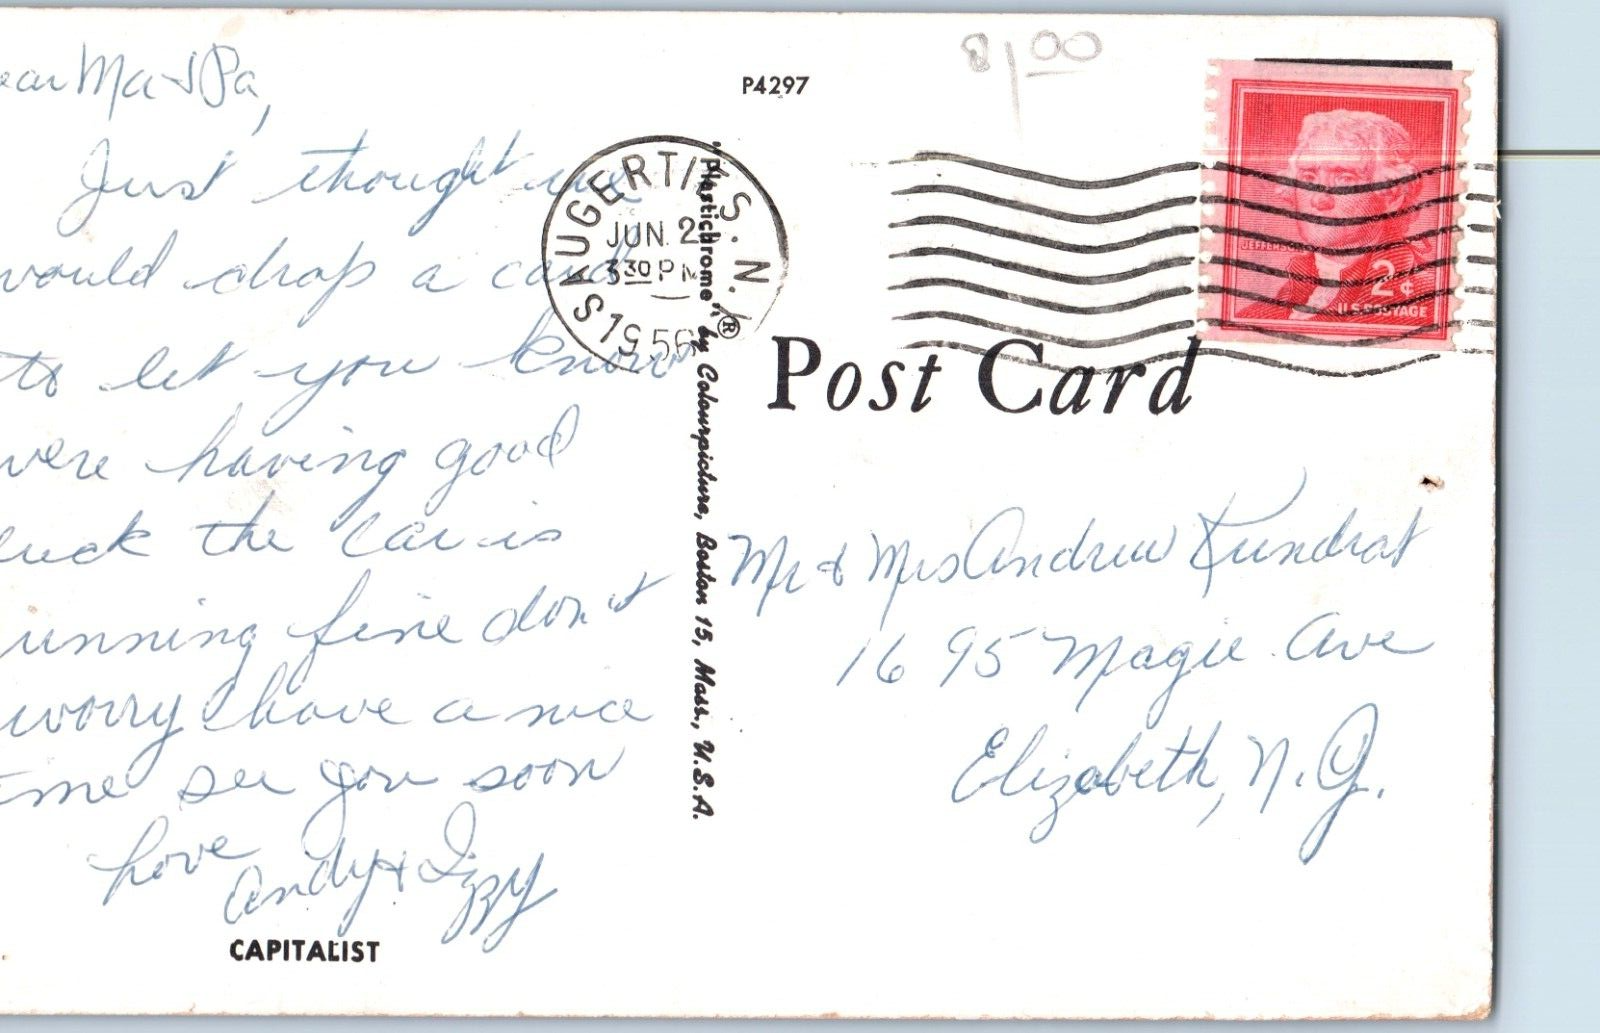 ear Ma & Pa,
Just thought we
would drop a card
to let you know
were having good
luck the car is
unning fine don't
worry have a nice
ime see you soon
Love
Andy & Izzy
CAPITALIST
P4297
8/00
SAUGERTIES. N.
JUN 2
3 30 PM
1956
"Plastichrome"® by Colourpicture, Boston 15, Mass., U.S.A.
JEFFERSON
2¢
U.S. POSTAGE
Post Card
Mr & Mrs Andrew Kundrat
1695 Magie Ave
Elizabeth, N.J.